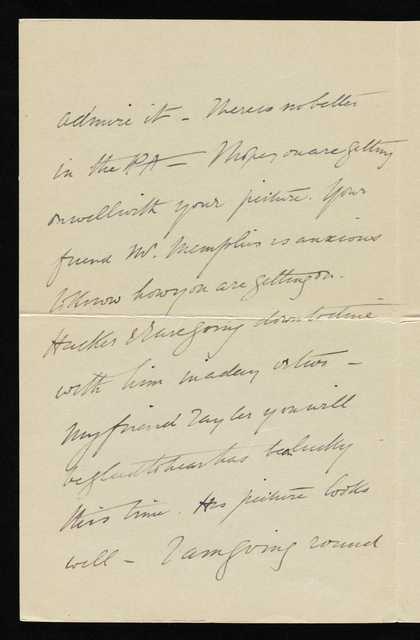 admire it – There is no better
in the RA – I hope you are getting
on well with your picture. Your
friend Mr. Memphis is anxious
to know how you are getting on.
Hacker & I are going down to dine
with him in a day or two –
My friend Tayler you will
be glad to hear has been lucky
this time. His picture looks
well – I am going round